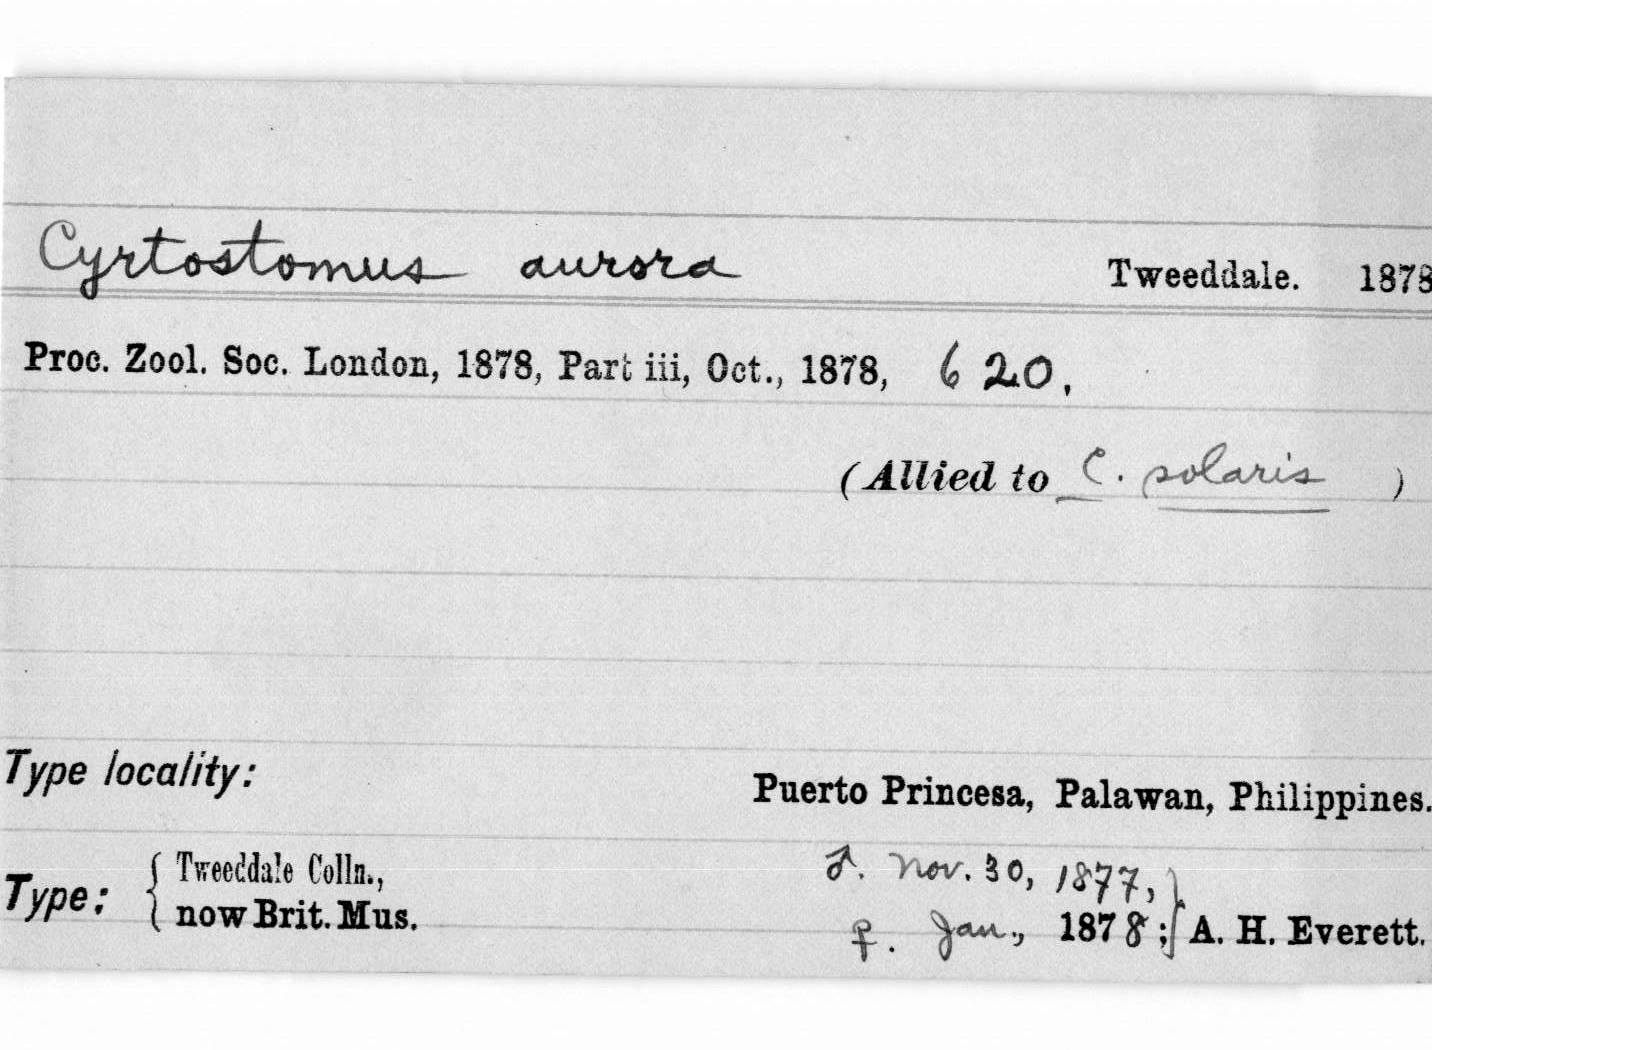 Cyrtostomus aurora Tweeddale. 1878
Proc. Zool. Soc. London, 1878, Part iii, Oct., 1878, 620.
(Allied to C. solaris )
Type locality:
Puerto Princesa, Palawan, Philippines.
Type: { Tweeddale Colln., ♂. Nov. 30, 1877, }
now Brit. Mus. ♀. Jan., 1878; A. H. Everett.